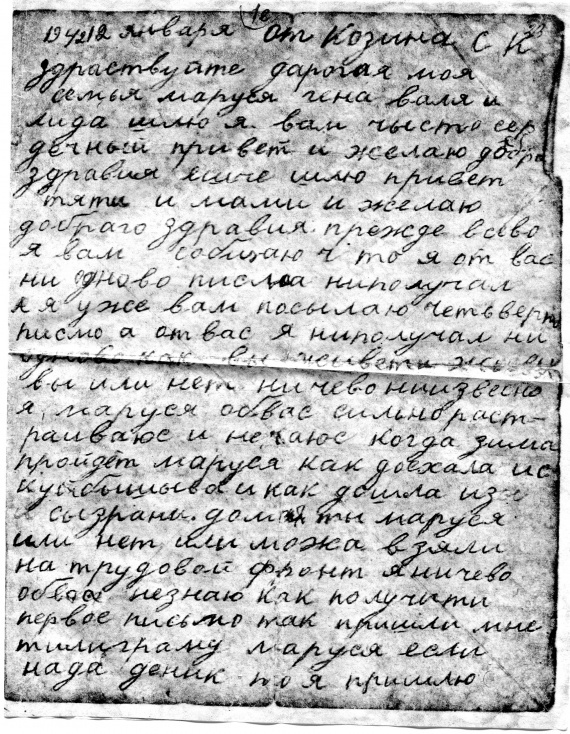 1942 12 января от Козина С К
здраствуйте дарогая моя
семья маруся гена валя и
лида шлю я вам чысто сер
дечный привет и желаю добра
здравия ешче шлю привет
тяти и мами и желаю
добраго здравия прежде всево
я вам собщаю что я от вас
ни одново писма ниполучал
а я уже вам посылаю четьверто
писмо а от вас я ниполучал ни
как вы живети
вы или нет ничево ниизвесно
я маруся обвас сильно раст-
раиваюс и когда зима
пройдет маруся как доехала ис
куйбышыва и как дошла из
сызрани. дома ты маруся
или нет или можа взяли
на трудовой фронт я ничево
обвас незнаю как получити
первое письмо так пришли мне
тилиграму маруся если
нада деник то я пришлю